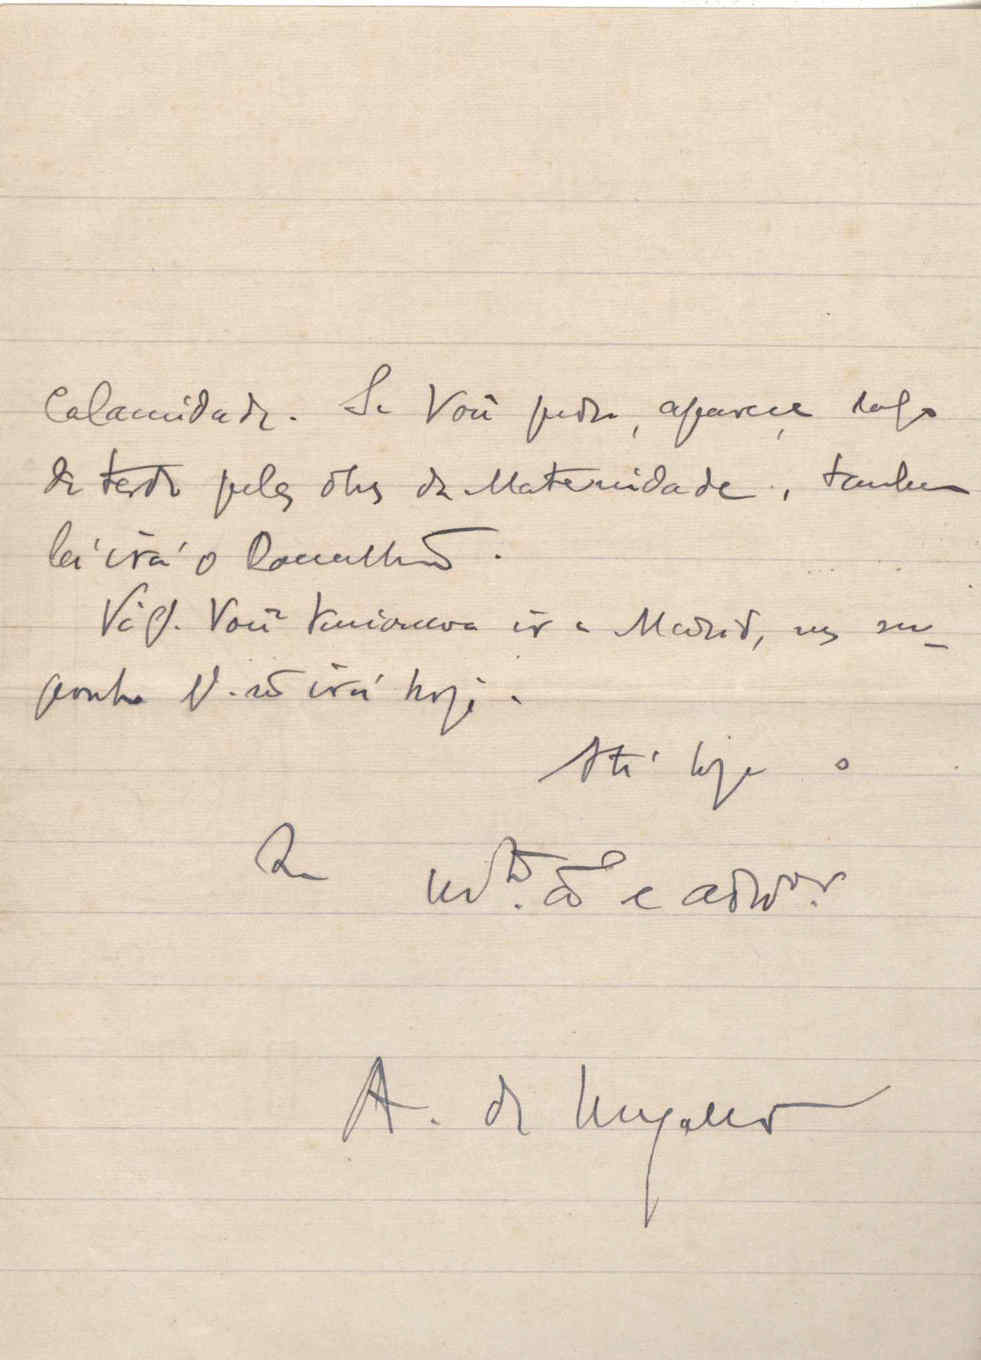 Calamidade. Se Você puder, apareça logo
de tarde pelas obras da Maternidade, tambem
lá irá o Ramalhão.
Você tencionava ir a Madrid, mas su-
ponho q. não irá hoje.
Até hoje o
Seu
mt.º am.º e admor.
A. de